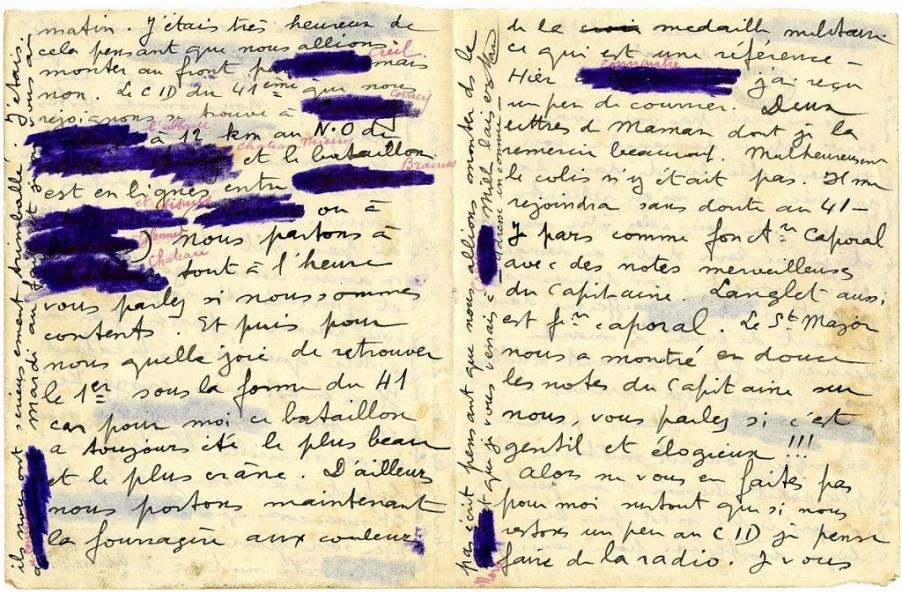 matin. J'étais très heureux de
cela pensant que nous allions
monter au front p mais
Creil
non. Le CID du 41ème que nous
rejoignons se trouve à
Coincy
l'abbaye
à 12 km au N.O de
Chateau Thierry
et le bataillon
est en lignes entre
Braines
et
ou à
) Nous partons à
Chateau
tout à l'heure
vous parlez si nous sommes
contents. Et puis pour
nous quelle joie de retrouver
le 1er sous la forme du 41
car pour moi ce bataillon
a toujours été le plus beau
et le plus crâne. D'ailleurs
nous portons maintenant
la fourragère aux couleurs
de la croix medaille militaire
ce qui est une référence -
Hier j'ai reçu
connaitre
un peu de courrier. Deux
lettres de Maman dont je la
remercie beaucoup. Malheureusement
le colis n'y était pas. Il me
rejoindra sans doute au 41 -
Je pars comme fonct.on Caporal
avec des notes merveilleuses
du Capitaine. Langlet aussi
est f.on caporal. Le St Major
nous a montré en douce
les notes du Capitaine sur
nous, vous parlez si c'est
gentil et élogieux !!!
Alors ne vous en faites pas
pour moi surtout que si nous
restons un peu au CID je pense
faire de la radio. Je vous
ils nous ont sérieusement trimballé. J'étais
mardi au
pas écrit pensant que nous allions monter de
que je vous
adresse inconnue -